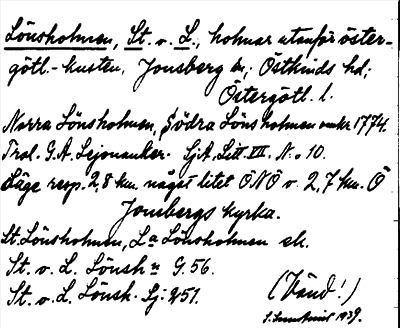 Lönsholmen, St. o. L., holmar utanför öster-
götl.-kusten, Jonsberg sn; Östkinds hd;
Östergötl. l.
Norra Lönsholmen, Södra Lönsholmen omkr. 1774.
Trol. G.A. Lejonanker. Sj.A. Litt. VII, N:o 10.
Läge resp. 2,8 km. något litet ÖNÖ o. 2,7 km. Ö
Jonsbergs kyrka.
St. Lönsholmen, La Lönsholmen ek.
St. o. L. Lönshn G. 56.
St. o. L. Lönsh. Sj: 251.
(Vänd!)
1939.